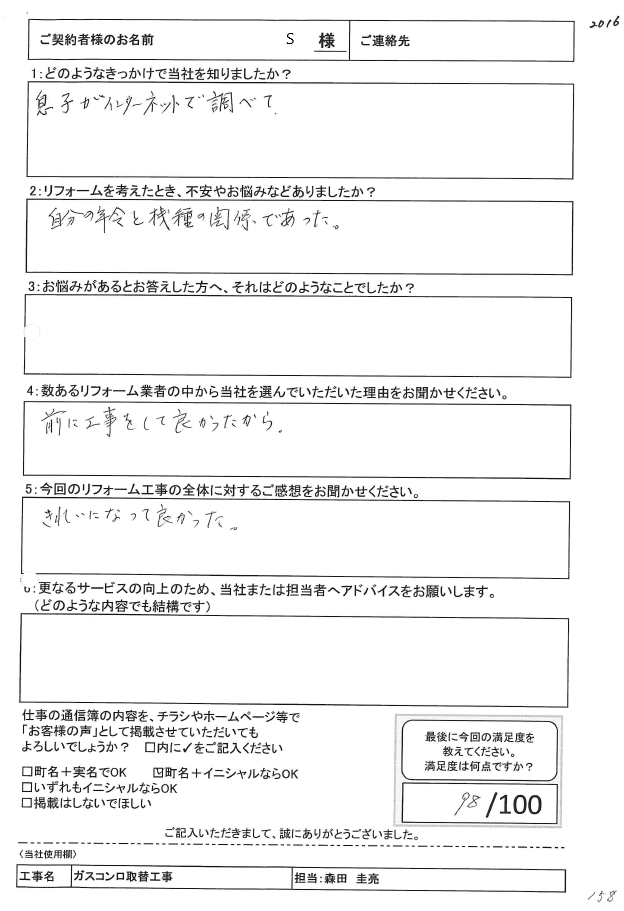 2016
ご契約者様のお名前 S 様 ご連絡先
1：どのようなきっかけで当社を知りましたか？
息子がインターネットで調べて．
2：リフォームを考えたとき、不安やお悩みなどありましたか？
自分の年令と機種の関係であった。
3：お悩みがあるとお答えした方へ、それはどのようなことでしたか？
4：数あるリフォーム業者の中から当社を選んでいただいた理由をお聞かせください。
前に工事をして良かったから。
5：今回のリフォーム工事の全体に対するご感想をお聞かせください。
きれいになって良かった。
6：更なるサービスの向上のため、当社または担当者へアドバイスをお願いします。
（どのような内容でも結構です）
仕事の通信簿の内容を、チラシやホームページ等で
「お客様の声」として掲載させていただいても
よろしいでしょうか？ □内に✓をご記入ください
□町名＋実名でOK ☑町名＋イニシャルならOK
□いずれもイニシャルならOK
□掲載はしないでほしい
最後に今回の満足度を
教えてください。
満足度は何点ですか？
98/100
ご記入いただきまして、誠にありがとうございました。
〈当社使用欄〉
工事名 ガスコンロ取替工事 担当：森田 圭亮
158